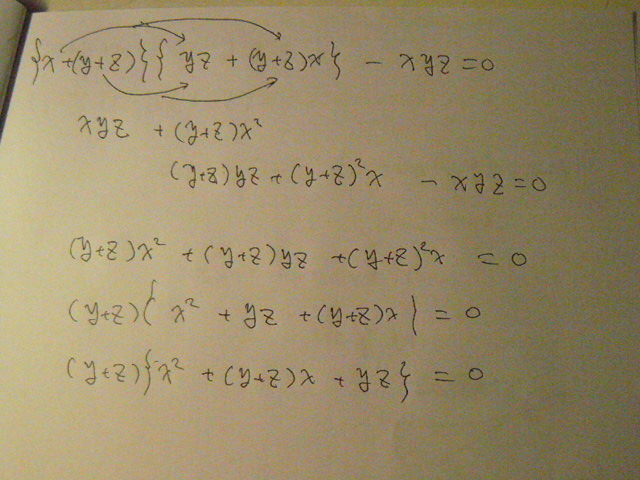 {x+(y+z)}{yz + (y+z)x} - xyz = 0
xyz + (y+z)x²
(y+z)yz + (y+z)²x - xyz = 0
(y+z)x² + (y+z)yz + (y+z)²x = 0
(y+z){x² + yz + (y+z)x} = 0
(y+z){x² + (y+z)x + yz} = 0